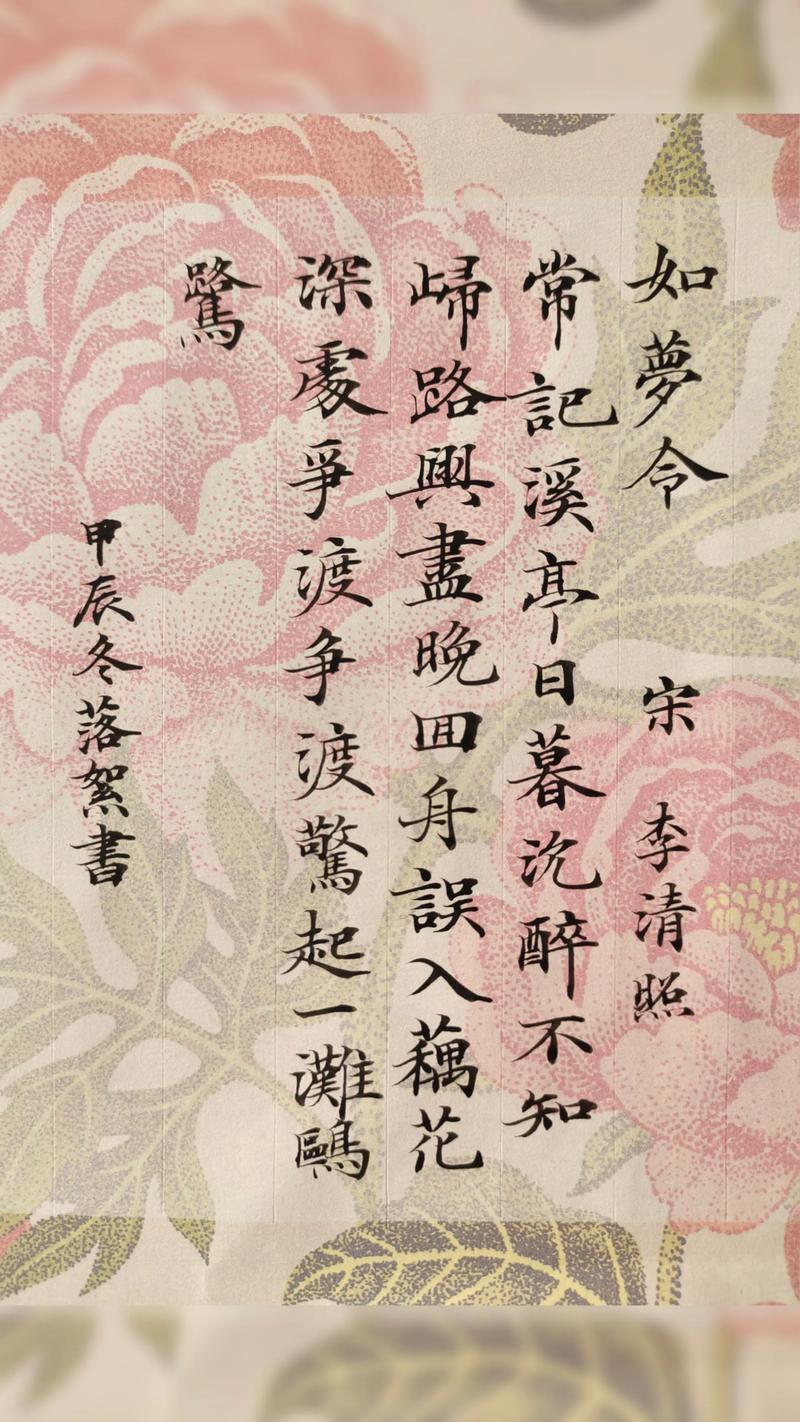 如夢令 宋 李清照
常記溪亭日暮沉醉不知
歸路興盡晚回身誤入藕花
深處爭渡爭渡驚起一灘鷗
鷺
甲辰冬落絮書